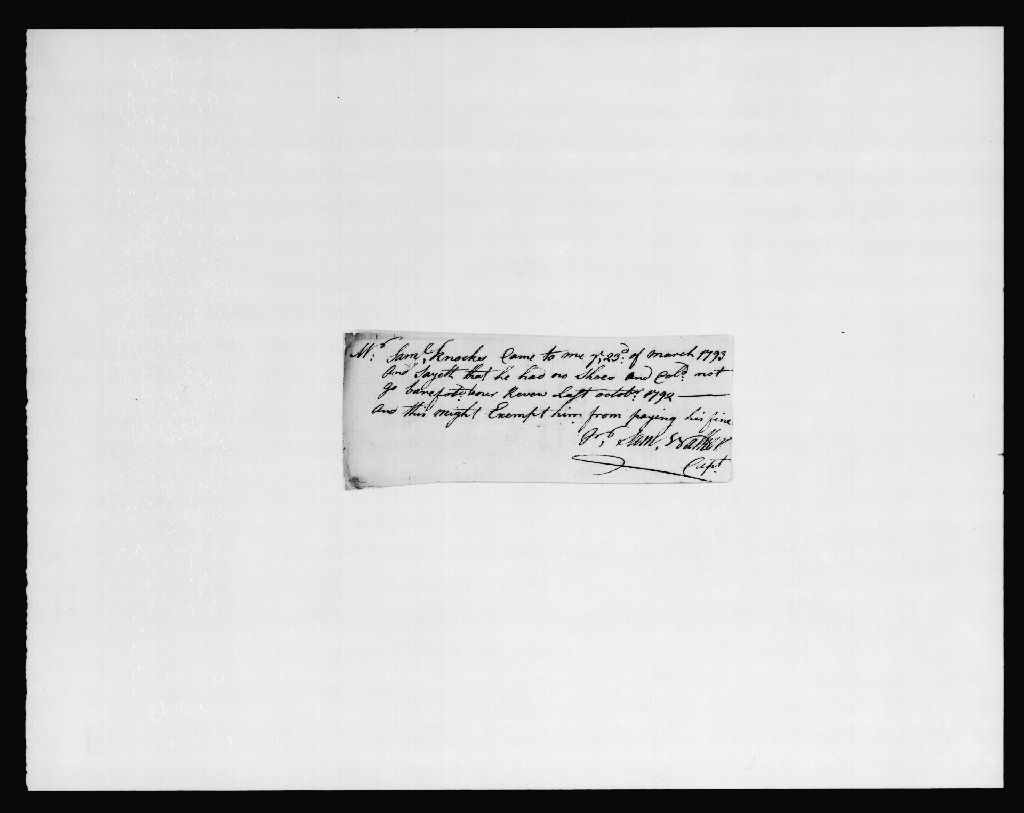 Mr. Saml. Knocker Came to me ye. 23d. of march 1793
And Sayeth that he had no Shoes and Cold. not
go barefot. over Reven last octobr. 1792 —
And this might Exempt him from paying his fine
Pr. Sam. Walker
Capt